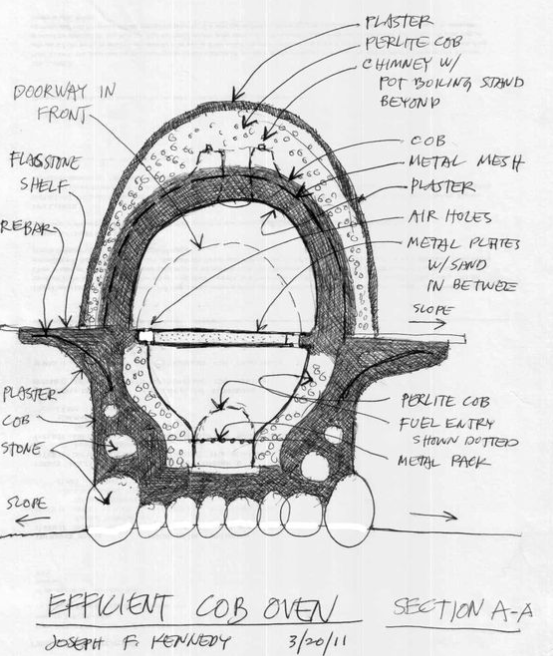 PLASTER
PERLITE COB
CHIMNEY W/
POT BOILING STAND
BEYOND
DOORWAY IN
FRONT
COB
METAL MESH
FLAGSTONE
SHELF
PLASTER
REBAR
AIR HOLES
METAL PLATES
W/ SAND
IN BETWEE
SLOPE
PLASTER
COB
STONE
PERLITE COB
FUEL ENTRY
SHOWN DOTTED
METAL PACK
SLOPE
EFFICIENT COB OVEN
SECTION A-A
JOSEPH F. KENNEDY 3/20/11